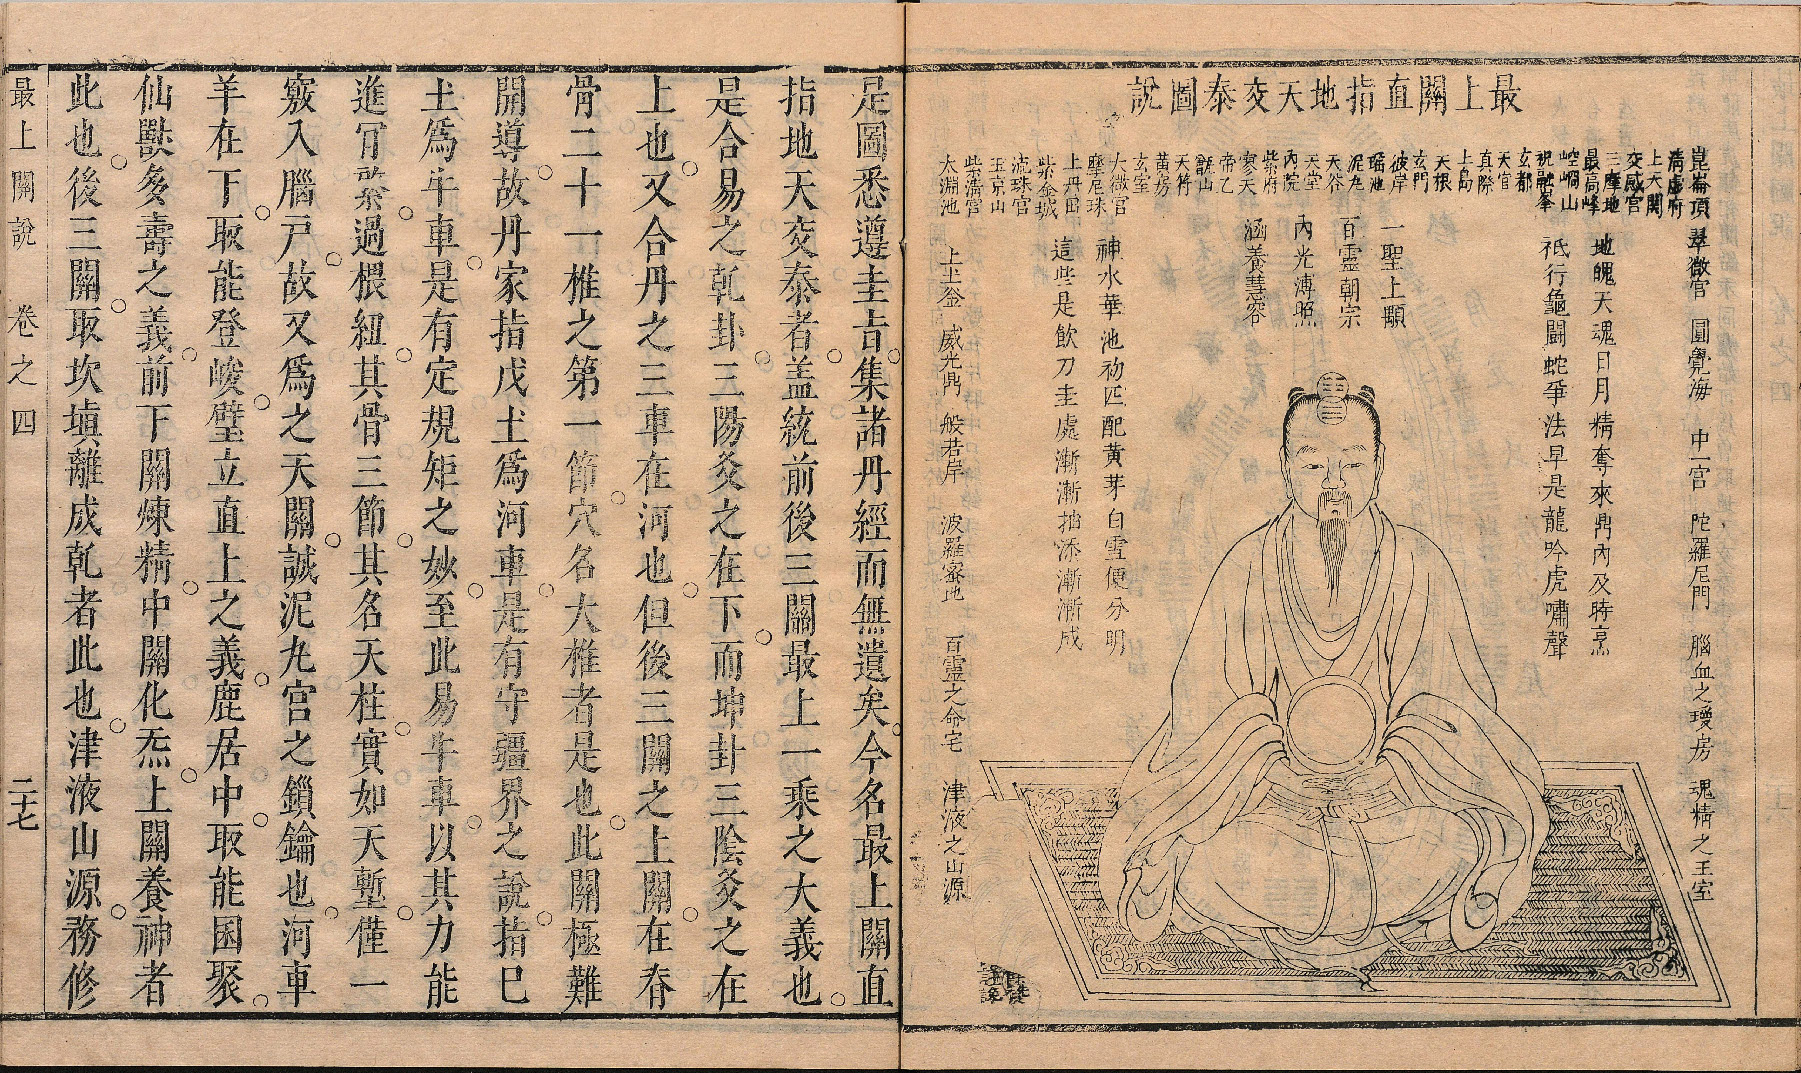 最上關直指地天交泰圖說
崑崙頂 翠微宮 圓覺海 中一宮 陀羅尼門 腦血之瓊房 魂精之玉室
清虛府
上天關
交感宮
三摩地
最高峰
崆峒山
祝融峯
玄都
天宮
真際
上島
天根
玄門
彼岸
瑤池
泥丸
天谷
天堂
內院
紫府
寥天
帝乙
甑山
天符
黃房
玄室
大微宮
摩尼珠
上丹田
紫金城
流珠宮
玉京山
紫清宮
太淵池
地魄天魂日月精奪來鼎內及時烹
祗行龜鬪蛇爭法早是龍吟虎嘯聲
一聖上顯
百靈朝宗
內光溥照
涵養慧容
神水華池初匹配黃芽白雪便分明
這些是飲刀圭處漸漸抽添漸漸成
上土釜 威光鼎 般若岸 波羅密地 百靈之命宅 津液之山源
是圖悉遵圭旨集諸丹經而無遺矣今名最上關直
指地天交泰者蓋統前後三關最上一乘之大義也
是合易之乹卦三陽爻之在下而坤卦三陰爻之在
上也又合丹之三車在河也但後三關之上關在脊
骨二十一椎之第一節穴名大椎者是也此關極難
開導故丹家指戊土爲河車是有守疆界之說指巳
土爲牛車是有定規矩之妙至此易牛車以其力能
進冐𥿄過椳紐其骨三節其名天柱實如天塹僅一
竅入腦戸故又爲之天關誠泥丸宮之鎻鑰也河車
羊在下取能登峻壁立直上之義鹿居中取能囷聚
仙獸多壽之義前下關煉精中關化炁上關養神者
此也後三關取坎塡離成乹者此也津液山源務修
最上關說 卷之四 二十七